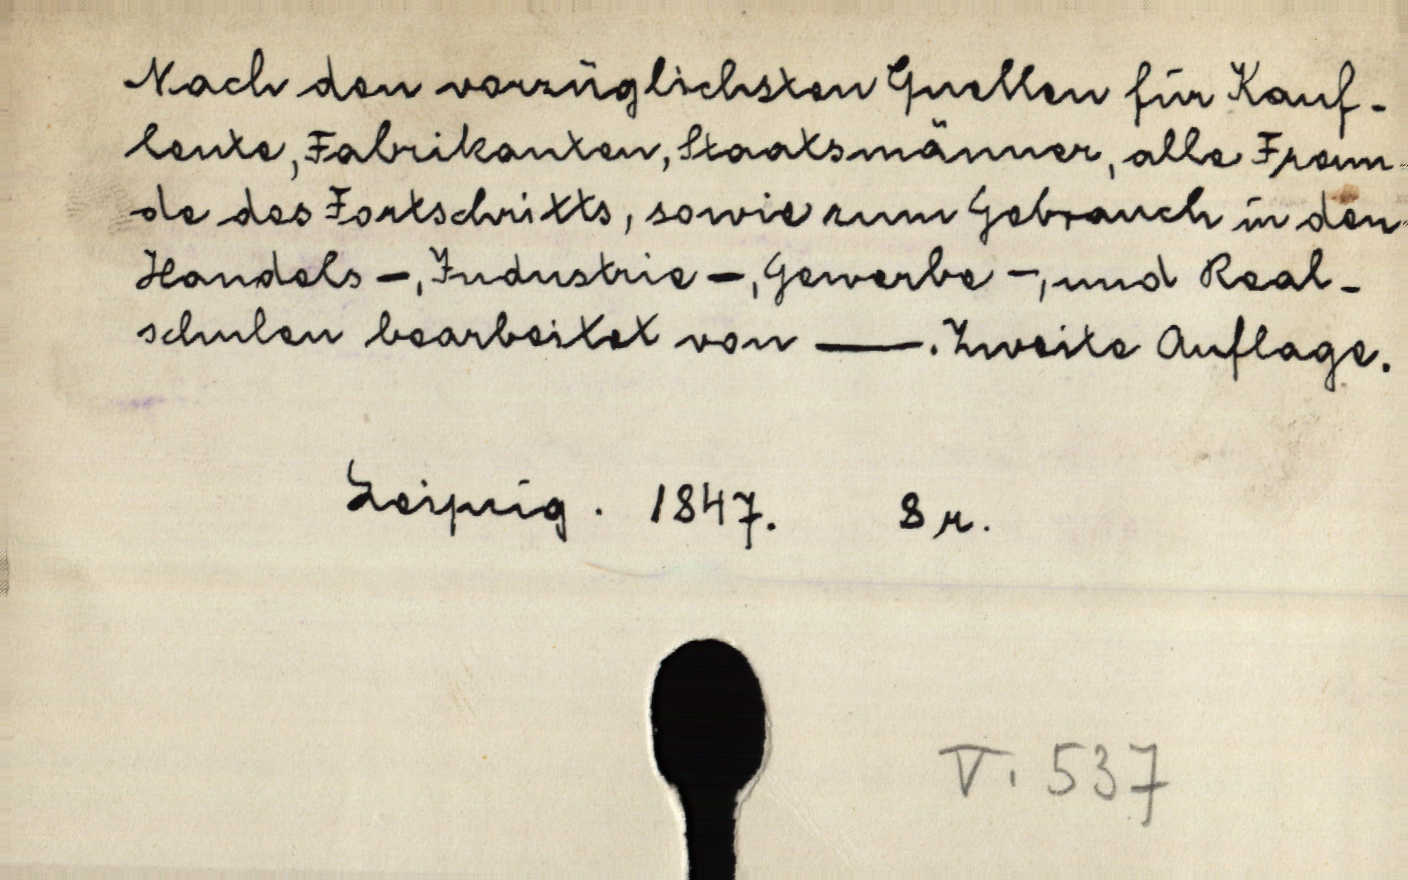 Nach den vorzüglichsten Quellen für Kauf-
leute, Fabrikanten, Staatsmänner, alle Freun-
de des Fortschritts, sowie zum Gebrauch in den
Handels -, Industrie -, Gewerbe -, und Real-
schulen bearbeitet von —. Zweite Auflage.
Leipzig. 1847. 8 r.
V. 537